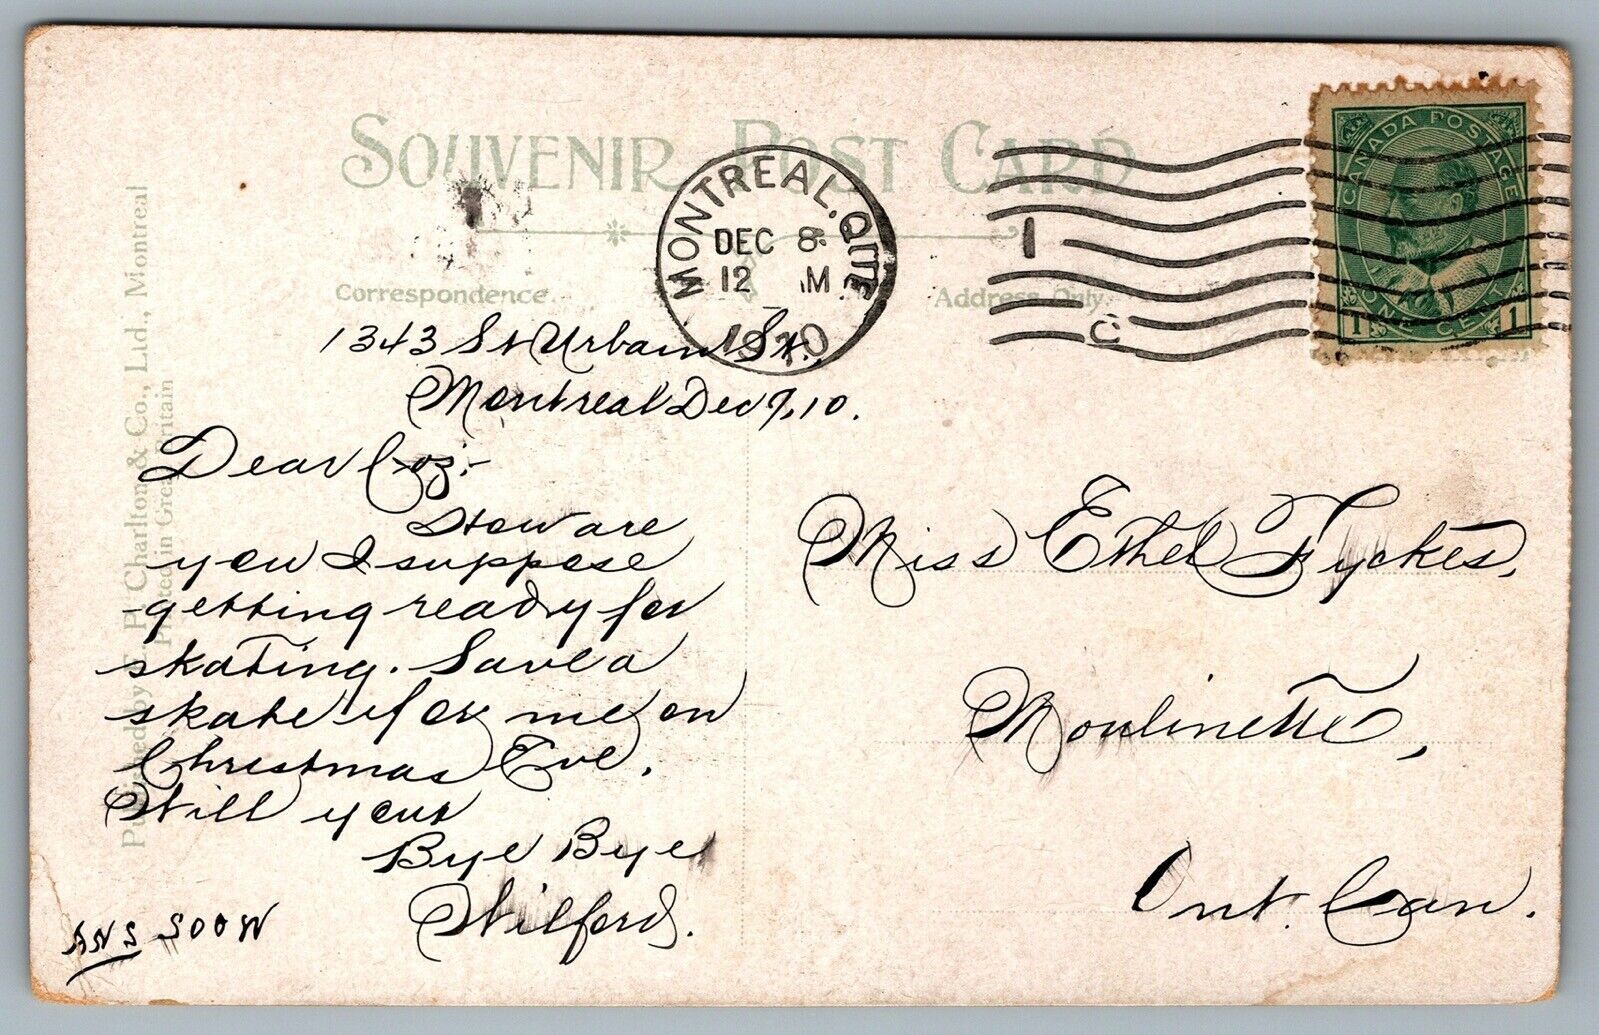 SOUVENIR POST CARD
MONTREAL, QUE
DEC 8
12 M
1910
1
C
CANADA POSTAGE
1 CENT 1
Correspondence.
Address Only.
Published by E. P. Charlton & Co., Ltd., Montreal
Printed in Great Britain
1343 St Urbain St.,
Montreal Dec 7, 10.
Dear Coz:-
How are
you I suppose
getting ready for
skating. Save a
skate for me on
Christmas Eve.
Will you
Bye Bye
Wilford.
ANS SOON
Miss Ethel Fyckes,
Moulinette,
Ont. Can.